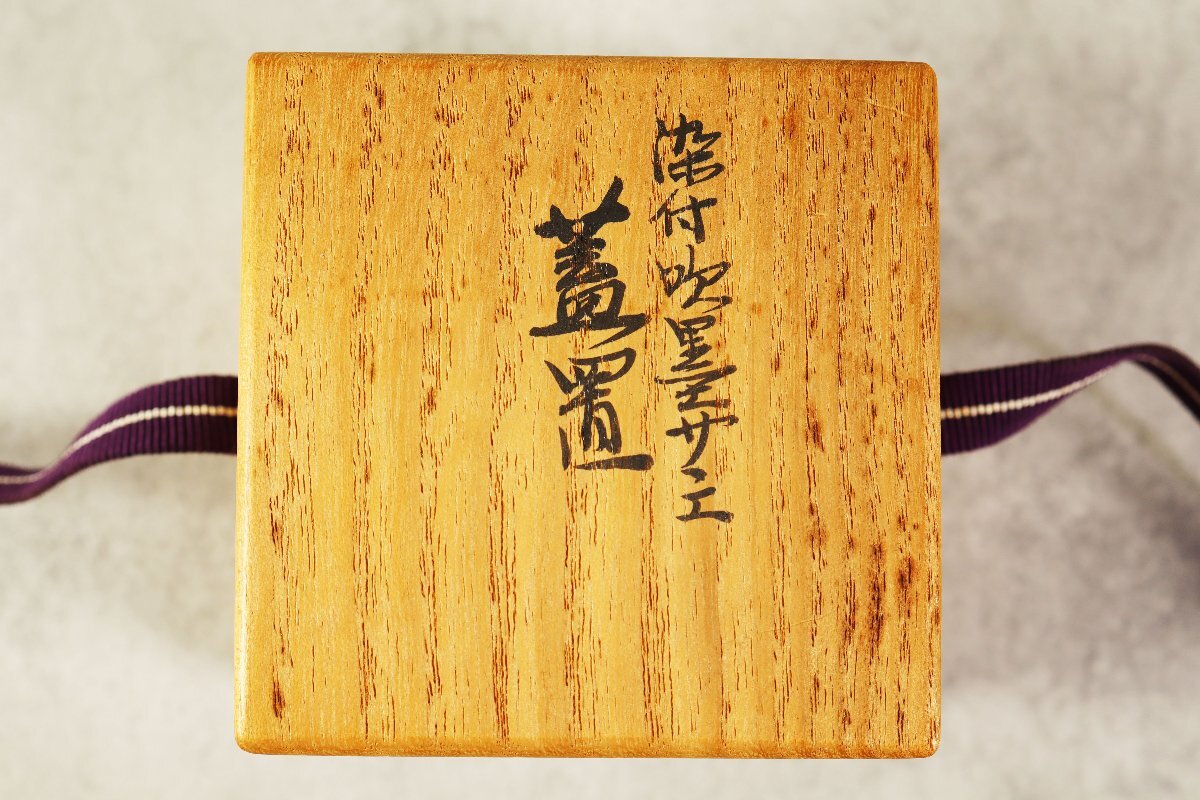 染付吹墨サヾエ
蓋置